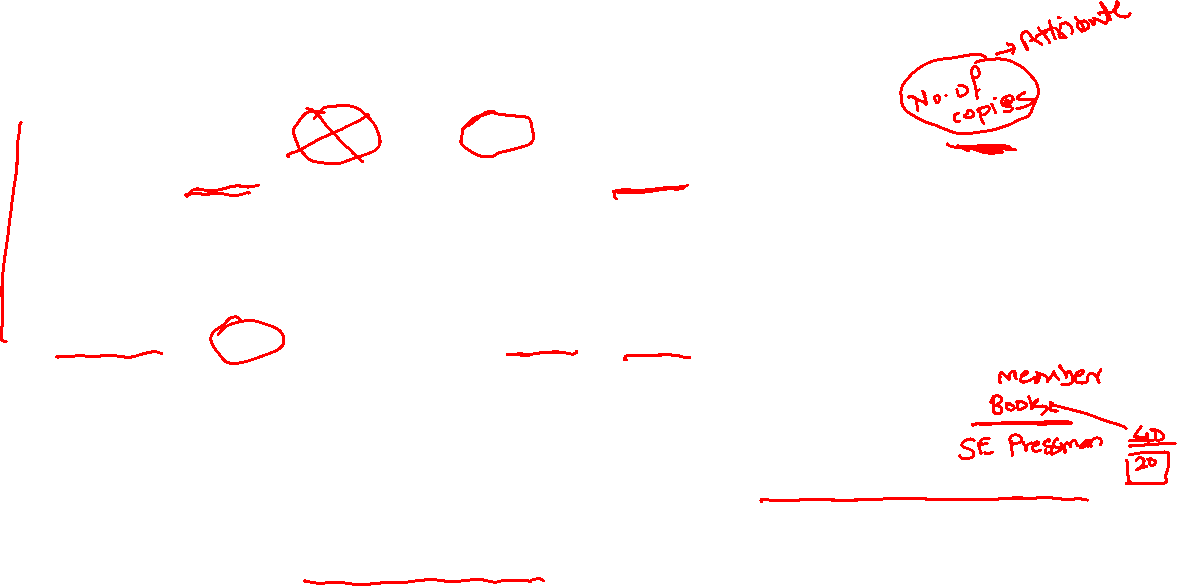 → Attribute
No. of
copies
member
Books
SE Pressman
40
20